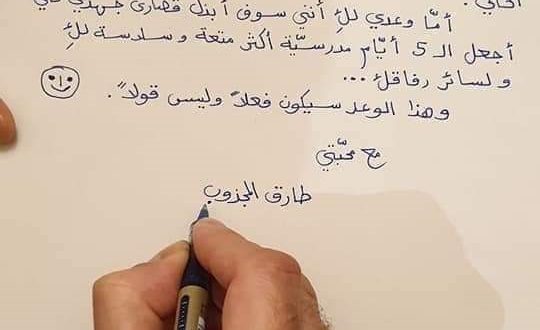 أمّا وعدي للِ أنني سوف أبذل قصارى جهدي في
أجعل الـ 5 أيّام مدرسيّة أكثر متعة وسلاسة للِ
ولسائر رفاقك ...
وهذا الوعد سيكون فعلاً وليس قولاً".
مع محبّتي
طارق المجذوب